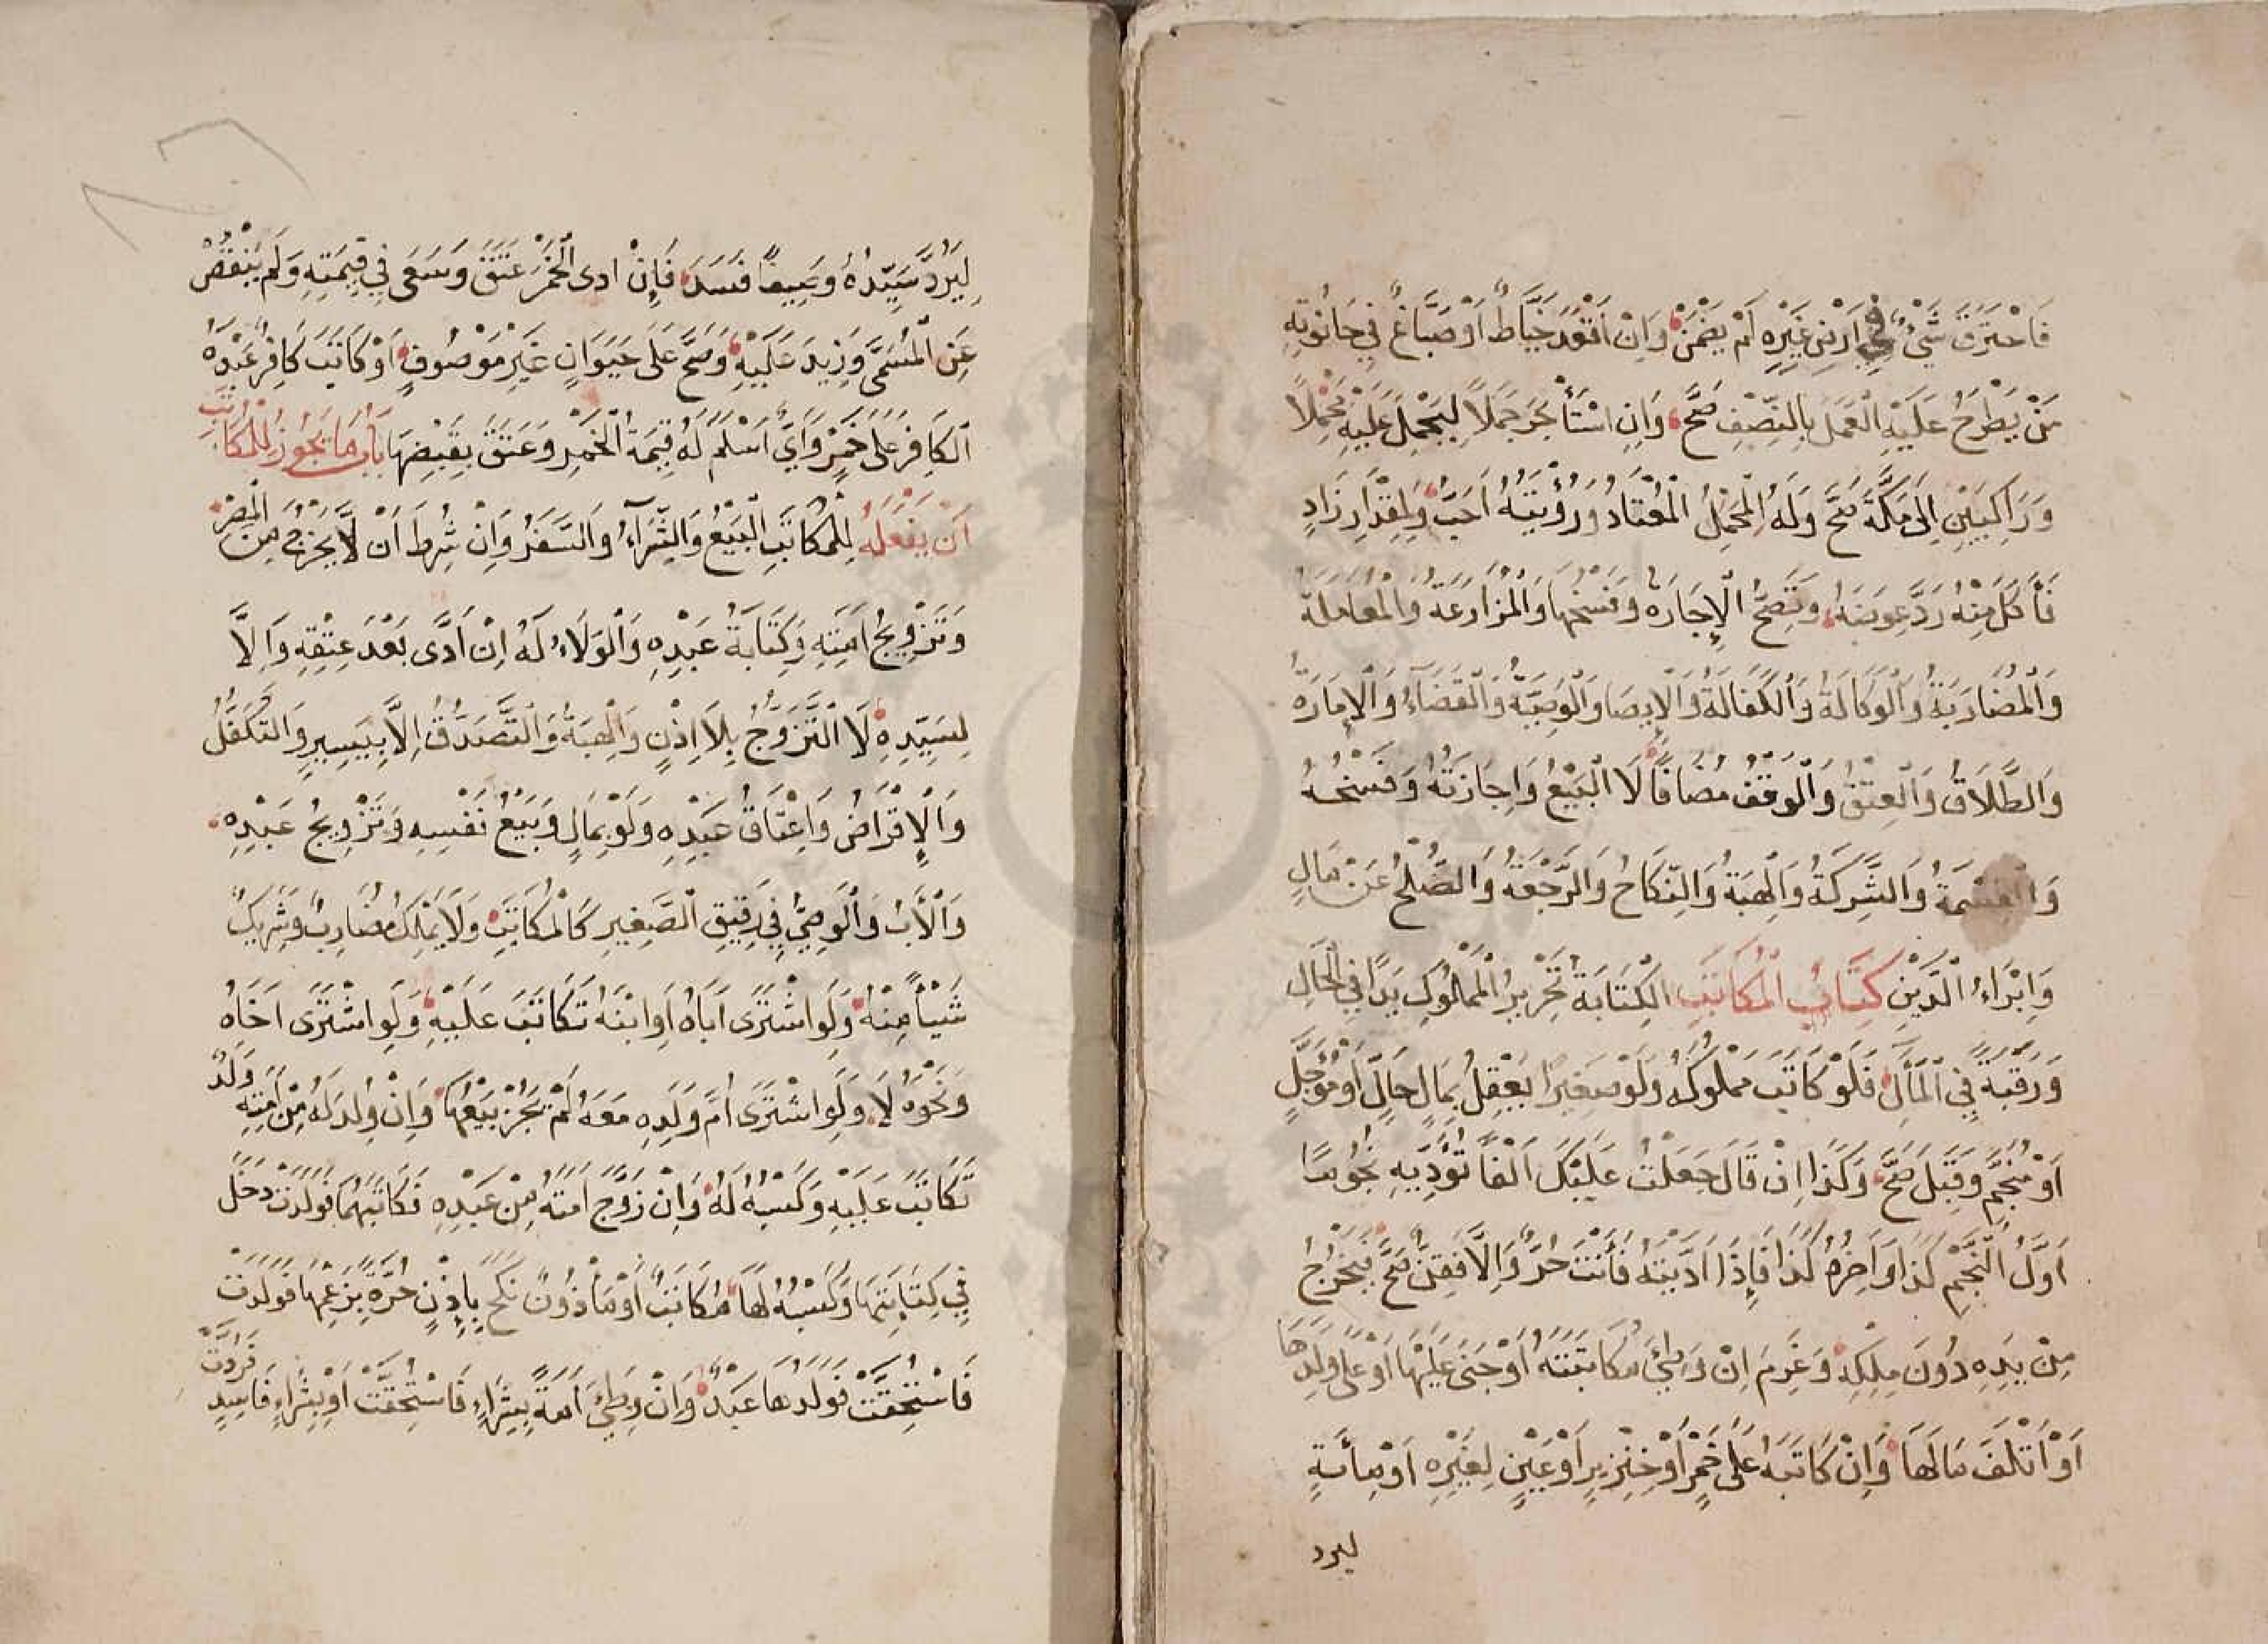 فَاحْتَرَقَ شَيْءٌ فِي اَرْضِ غَيْرِهِ لَمْ يَضْمَنْ وَاِنْ اَقْعَدَ خَيَّاطٌ اَوْ صَبَّاغٌ فِي حَانُوتِهِ
مَنْ يَطْرَحُ عَلَيْهِ الْعَمَلَ بِالنِّصْفِ صَحَّ وَاِنِ اسْتَأْجَرَ جَمَلًا لِيَحْمِلَ عَلَيْهِ مَحْمِلًا
وَرَاكِبَيْنِ اِلَى مَكَّةَ صَحَّ وَلَهُ الْمَحْمِلُ الْمُعْتَادُ وَرُؤْيَتُهُ اَحَبُّ وَلِمِقْدَارِ زَادٍ
فَأَكَلَ مِنْهُ رَدَّ عِوَضَهُ وَتَصِحُّ الْإِجَارَةُ وَفَسْخُهَا وَالْمُزَارَعَةُ وَالْمُعَامَلَةُ
وَالْمُضَارَبَةُ وَالْوَكَالَةُ وَالْكَفَالَةُ وَالْاِيصَا وَالْوَصِيَّةُ وَالْقَضَآءُ وَالْاِمَارَةُ
وَالطَّلَاقُ وَالْعِتْقُ وَالْوَقْفُ مُضَافًا لَا الْبَيْعُ وَاِجَازَتُهُ وَفَسْخُهُ
وَالْقِسْمَةُ وَالشَّرِكَةُ وَالْهِبَةُ وَالنِّكَاحُ وَالرَّجْعَةُ وَالصُّلْحُ عَنْ مَالٍ
وَاِبْرَاءُ الدَّيْنِ كِتَابُ الْمُكَاتَبِ الْكِتَابَةُ تَحْرِيرُ الْمَمْلُوكِ يَدًا فِي الْحَالِ
وَرَقَبَةً فِي الْمَآلِ فَلَوْ كَاتَبَ مَمْلُوكَهُ وَلَوْ صَغِيرًا يَعْقِلُ بِمَالٍ حَالٍّ اَوْ مُؤَجَّلٍ
اَوْ مُنَجَّمٍ وَقَبِلَ صَحَّ وَكَذَا اِنْ قَالَ جَعَلْتُ عَلَيْكَ اَلْفًا تُؤَدِّيهِ نُجُومًا
اَوَّلُ النَّجْمِ كَذَا وَاٰخِرُهُ كَذَا فَاِذَا اَدَّيْتَهُ فَأَنْتَ حُرٌّ وَاِلَّا فَقِنٌّ صَحَّ فَيَخْرُجُ
مِنْ يَدِهِ دُونَ مِلْكِهِ وَغَرِمَ اِنْ وَطِئَ مُكَاتَبَتَهُ اَوْ جَنَى عَلَيْهَا اَوْ عَلَى وَلَدِهَا
اَوْ اَتْلَفَ مَالَهَا وَاِنْ كَاتَبَهُ عَلَى خَمْرٍ اَوْ خِنْزِيرٍ اَوْ عَيْنٍ لِغَيْرِهِ اَوْ مِأَيَةٍ
ليرد
لِيَرُدَّ سَيِّدُهُ وَصِيفًا فَسَدَ فَإِنْ ادى الْخَمْرَ عَتَقَ وَسَعَى فِي قِيمَتِهِ وَلَمْ يَنْقُصْ
عَنِ الْمُسَمَّى وَزِيدَ عَلَيْهِ وَصَحَّ عَلَى حَيَوَانٍ غَيْرِ مَوْصُوفٍ اَوْ كَاتَبَ كَافِرٌ عَبْدَهُ
الْكَافِرَ عَلَى خَمْرٍ وَاَيٌّ اَسْلَمَ لَهُ قِيمَةُ الْخَمْرِ وَعَتَقَ بِقَبْضِهَا بَابُ مَا يَجُوزُ لِلْمُكَاتَبِ
اَنْ يَفْعَلَهُ لِلْمُكَاتَبِ الْبَيْعُ وَالشِّرَآءُ وَالسَّفَرُ وَاِنْ شُرِطَ اَنْ لَّا يَخْرُجَ مِنَ الْمِصْرِ
وَتَزْوِيجُ اَمَتِهِ وَكِتَابَةُ عَبْدِهِ وَالْوَلَاءُ لَهُ اِنْ اَدَّى بَعْدَ عِتْقِهِ وَاِلَّا
لِسَيِّدِهِ لَا التَّزَوُّجُ بِلَا اِذْنٍ وَالْهِبَةُ وَالتَّصَدُّقُ اِلَّا بِيَسِيرٍ وَالتَّكَفُّلُ
وَالْاِقْرَاضُ وَاِعْتَاقُ عَبْدِهِ وَلَوْ بِمَالٍ وَبَيْعُ نَفْسِهِ وَتَزْوِيجُ عَبْدِهِ
وَالْأَبُ وَالْوَصِيُّ فِي رَقِيقِ الصَّغِيرِ كَالْمُكَاتَبِ وَلَا يَمْلِكُ مُضَارِبٌ وَشَرِيكٌ
شَيْأً مِنْهُ وَلَوِ اشْتَرَى اَبَاهُ اَوِ ابْنَهُ تَكَاتَبَ عَلَيْهِ وَلَوِ اشْتَرَى اَخَاهُ
وَنَحْوَهُ لَا وَلَوِ اشْتَرَى اُمَّ وَلَدِهِ مَعَهُ لَمْ يَجُزْ بَيْعُهَا وَاِنْ وُلِدَ لَهُ مِنْ اَمَتِهِ وَلَدٌ
تَكَاتَبَ عَلَيْهِ وَكَسْبُهُ لَهُ وَاِنْ زَوَّجَ اَمَتَهُ مِنْ عَبْدِهِ فَكَاتَبَهُمَا فَوَلَدَتْ دَخَلَ
فِي كِتَابَتِهَا وَكَسْبُهُ لَهَا مُكَاتَبٌ اَوْ مَأْذُونٌ نَكَحَ بِاِذْنٍ حُرَّةً بِزَعْمِهَا فَوَلَدَتْ
فَاسْتُحِقَّتْ فَوَلَدُهَا عَبْدٌ وَاِنْ وَطِئَ اَمَةً بِشِرَاءٍ فَاسْتُحِقَّتْ اَوْ بِشِرَاءٍ فَاسِدٍ فَرُدَّتْ